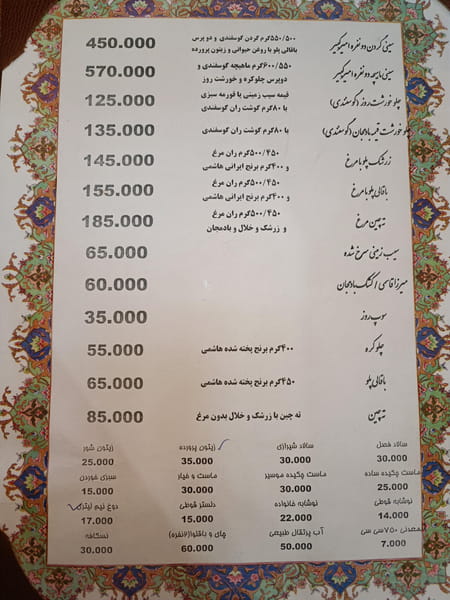 سینی گردن دو نفره امیرکبیر ۵۵۰/۵۰۰گرم گردن گوسفندی و دو پرس باقالی پلو با روغن حیوانی و زیتون پرورده 450.000
سینی ماهیچه دو نفره امیرکبیر ۶۰۰/۵۵۰گرم ماهیچه گوسفندی و دوپرس چلوکره و خورشت روز 570.000
چلو خورشت روز (گوسفندی) قیمه سیب زمینی یا قورمه سبزی با ۸۰گرم گوشت ران گوسفندی 125.000
چلو خورشت قیمه بادمجان (گوسفندی) با ۸۰گرم گوشت ران گوسفندی 135.000
زرشک پلو با مرغ ۵۰۰/۴۵۰گرم ران مرغ و ۴۰۰گرم برنج ایرانی هاشمی 145.000
باقالی پلو با مرغ ۵۰۰/۴۵۰گرم ران مرغ و ۴۰۰گرم برنج ایرانی هاشمی 155.000
ته چین مرغ ۵۰۰/۴۵۰گرم ران مرغ و زرشک و خلال و بادمجان 185.000
سیب زمینی سرخ شده 65.000
میرزا قاسمی / کشک بادمجان 60.000
سوپ روز 35.000
چلو کره ۴۰۰گرم برنج پخته شده هاشمی 55.000
باقالی پلو ۴۵۰گرم برنج پخته شده هاشمی 65.000
ته چین ته چین با زرشک و خلال بدون مرغ 85.000
سالاد فصل سالاد شیرازی زیتون پرورده زیتون شور
30.000 30.000 35.000 25.000
ماست چکیده ساده ماست چکیده موسیر ماست و خیار سبزی خوردن
25.000 30.000 25.000 15.000
نوشابه قوطی نوشابه خانواده دلستر قوطی دوغ نیم لیتری
14.000 22.000 15.000 17.000
معدنی ۷۵۰سی سی آب پرتقال طبیعی چای و باقلوا(۲نفره) نسکافه
7.000 50.000 60.000 30.000